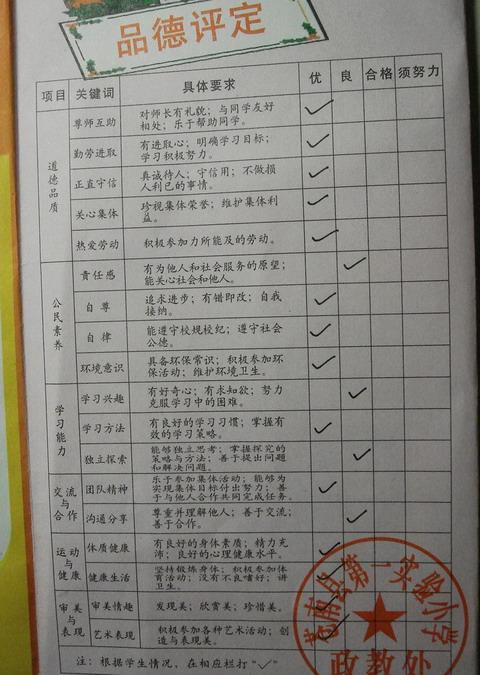 品德评定
项目 关键词 具体要求 优 良 合格 须努力
道德品质
尊师互助 对师长有礼貌；与同学友好
相处；乐于帮助同学。 ✓
勤劳进取 有进取心；明确学习目标；
学习积极努力。 ✓
正直守信 真诚待人；守信用；不做损
人利己的事情。 ✓
关心集体 珍视集体荣誉；维护集体利
益。 ✓
热爱劳动 积极参加力所能及的劳动。 ✓
公民素养
责任感 有为他人和社会服务的愿望；
能关心社会和他人。 ✓
自尊 追求进步；有错即改；自我
接纳。 ✓
自律 能遵守校规校纪；遵守社会
公德。 ✓
环境意识 具备环保常识；积极参加环
保活动；维护环境卫生。 ✓
学习能力
学习兴趣 有好奇心；有求知欲；努力
克服学习中的困难。 ✓
学习方法 有良好的学习习惯；掌握有
效的学习策略。 ✓
独立探索 能够独立思考；掌握探究的
策略与方法；善于提出问题
和解决问题。 ✓
交流与合作
团队精神 乐于参加集体活动；能够为
实现集体目标付出努力；善
于与他人合作共同完成任务。 ✓
沟通分享 尊重并理解他人；善于交流；
善于合作。 ✓
运动与健康
体质健康 有良好的身体素质；精力充
沛；良好的心理健康水平。 ✓
健康生活 坚持锻炼身体；积极参加体
育活动；没有不良嗜好；讲
卫生。
审美与表现
审美情趣 发现美；欣赏美；珍惜美。 ✓
艺术表现 积极参加各种艺术活动；创
造与表现美。 ✓
注：根据学生情况，在相应栏打“✓”
县第一实验小学
政教处